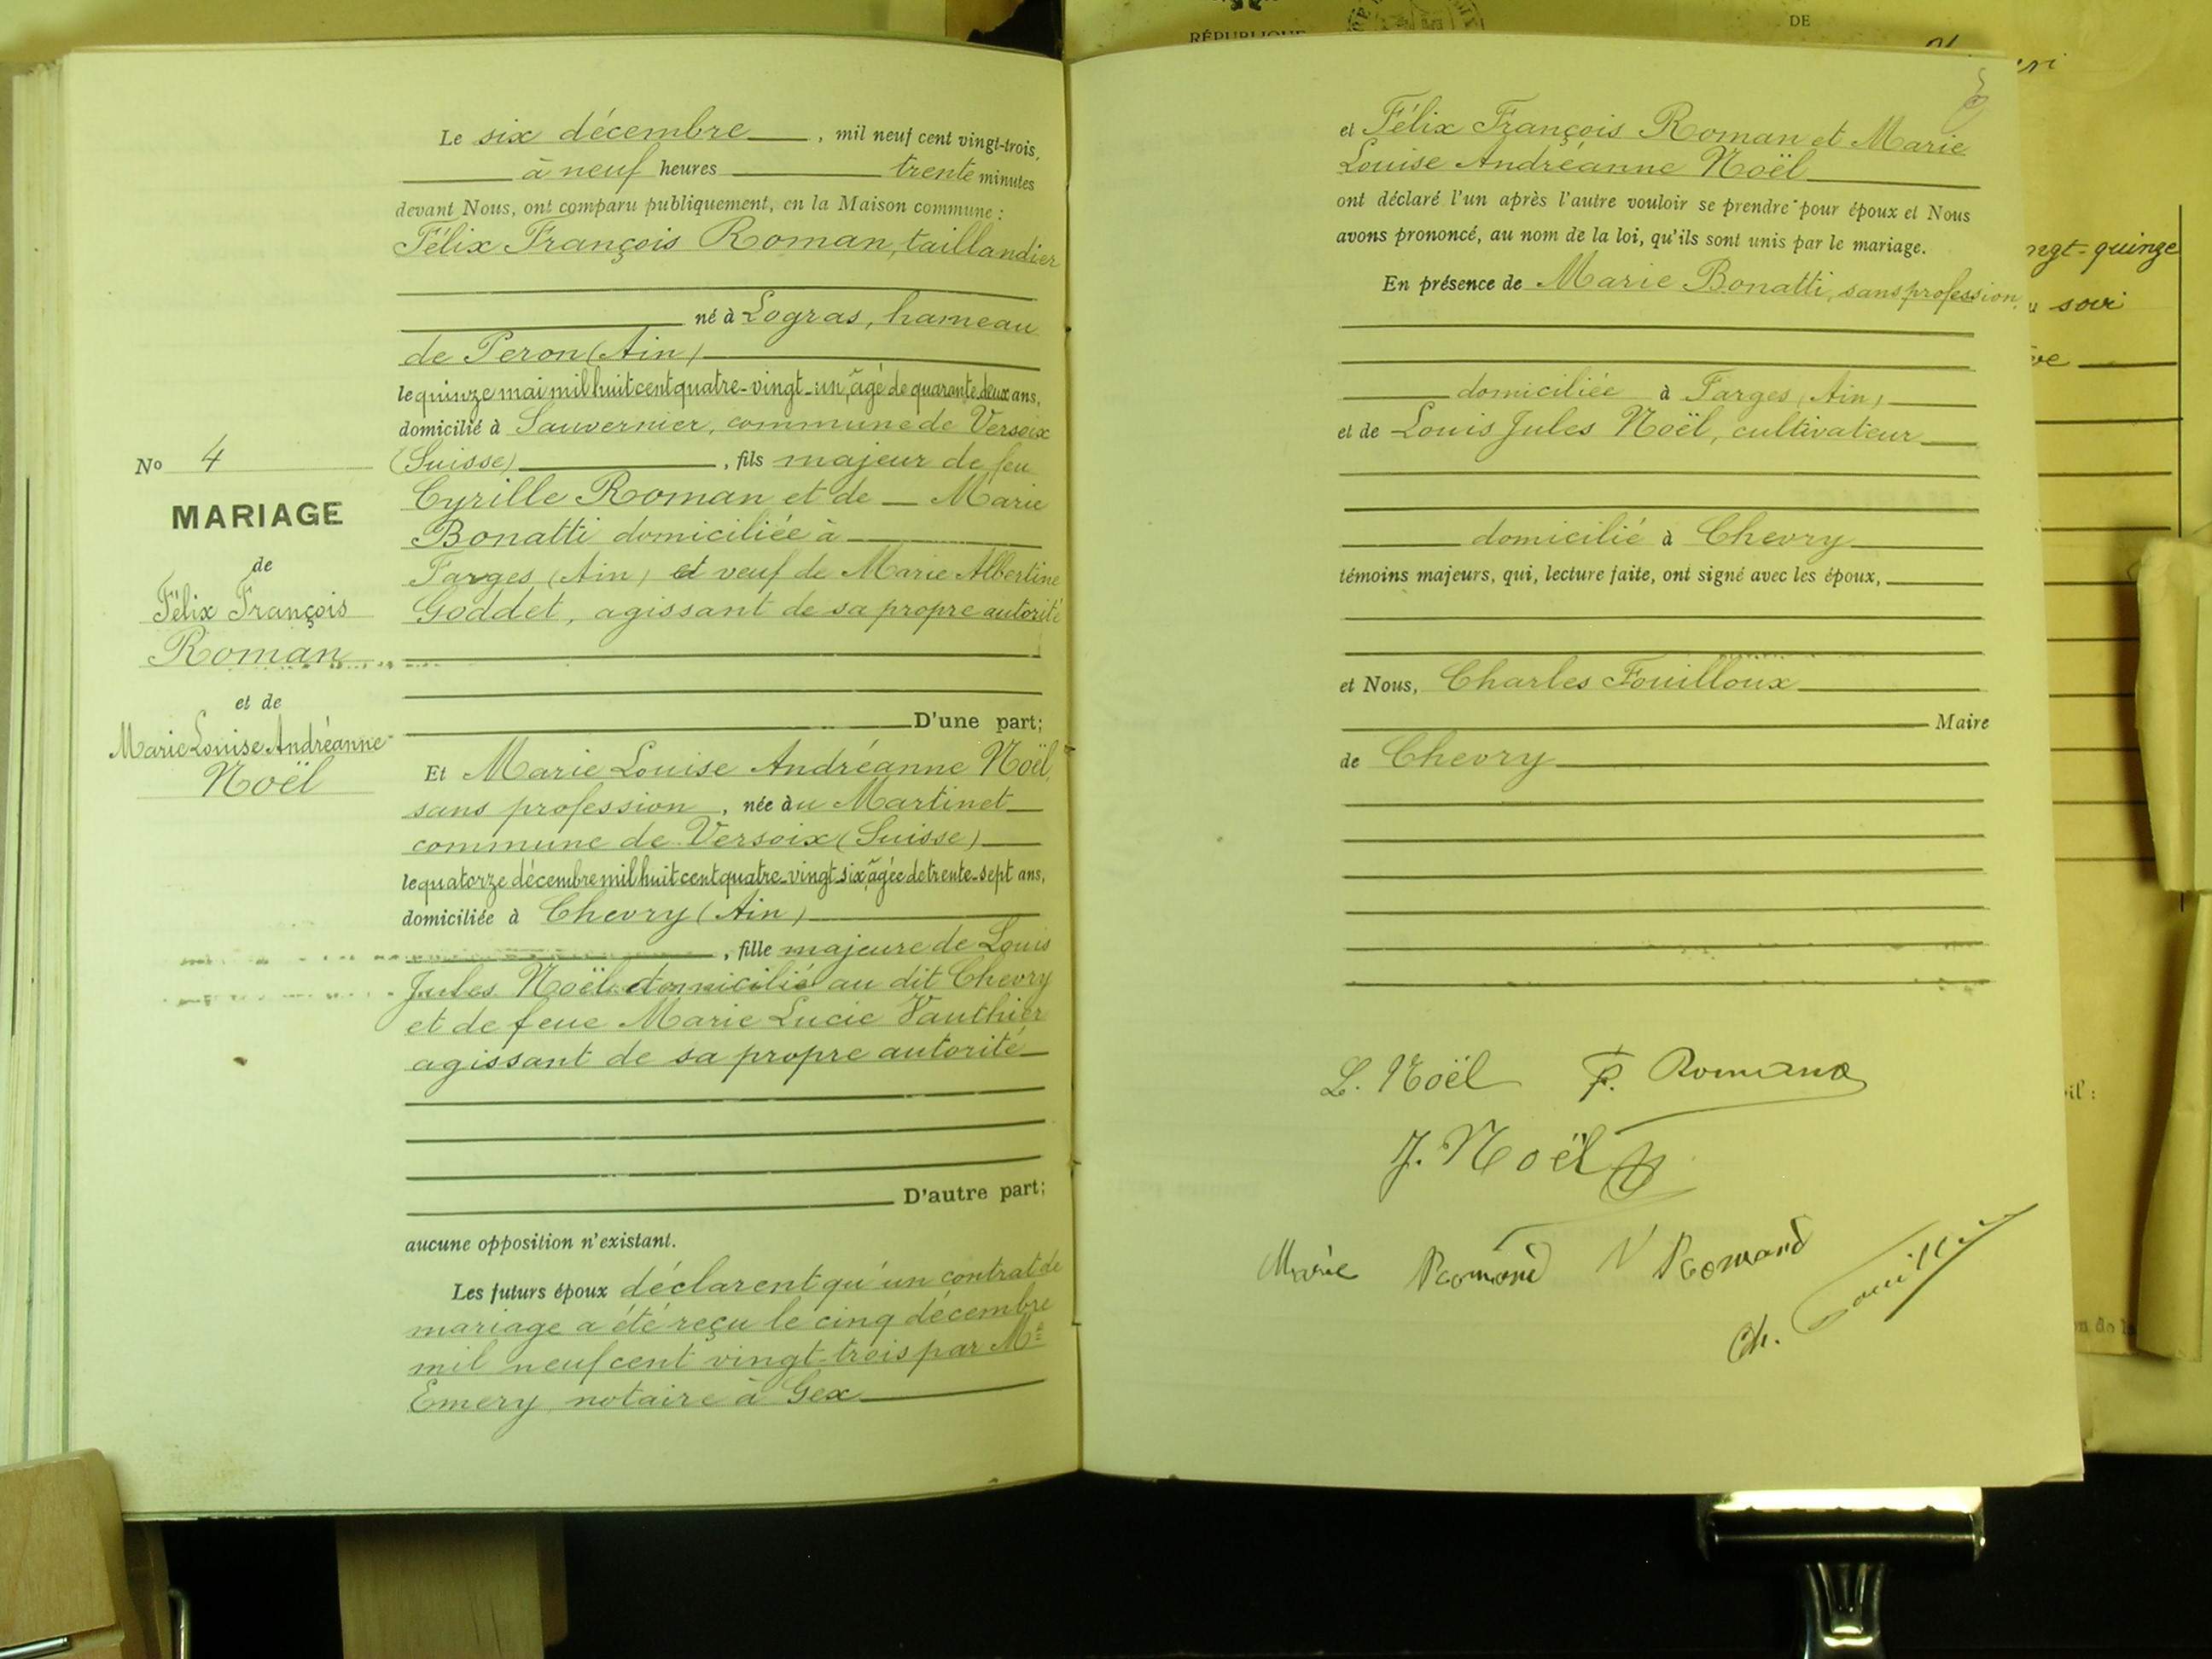 RÉPUBLIQUE
DE
Le six décembre, mil neuf cent vingt-trois,
à neuf heures trente minutes
devant Nous, ont comparu publiquement, en la Maison commune :
Félix François Roman, taillandier
né à Logras, hameau
de Peron (Ain)
le quinze mai mil huit cent quatre-vingt-un, âgé de quarante-deux ans,
domicilié à Sauvernier, commune de Versoix
(Suisse), fils majeur de feu
Cyrille Roman et de Marie
Bonatti domiciliée à
Farges (Ain) et veuf de Marie Albertine
Goddet, agissant de sa propre autorité
D'une part;
No 4
MARIAGE
de
Félix François
Roman
et de
Marie Louise Andréanne
Noël
Et Marie Louise Andréanne Noël,
sans profession, née àu Martinet
commune de Versoix (Suisse)
le quatorze décembre mil huit cent quatre-vingt-six, âgée de trente-sept ans,
domiciliée à Chevry (Ain)
, fille majeure de Louis
Jules Noël domicilié au dit Chevry
et de feue Marie Lucie Vauthier
agissant de sa propre autorité
D'autre part;
aucune opposition n'existant.
Les futurs époux déclarent qu'un contrat de
mariage a été reçu le cinq décembre
mil neuf cent vingt-trois par Me
Emery notaire à Gex
et Félix François Roman et Marie
Louise Andréanne Noël
ont déclaré l'un après l'autre vouloir se prendre pour époux et Nous
avons prononcé, au nom de la loi, qu'ils sont unis par le mariage.
En présence de Marie Bonatti, sans profession,
domiciliée à Farges (Ain)
et de Louis Jules Noël, cultivateur
domicilié à Chevry
témoins majeurs, qui, lecture faite, ont signé avec les époux,
et Nous, Charles Fouilloux
Maire
de Chevry
L. Noël F. Romand
J. Noël
Marie Romand Romand
Ch. Fouilloux
ngt-quinze
soir